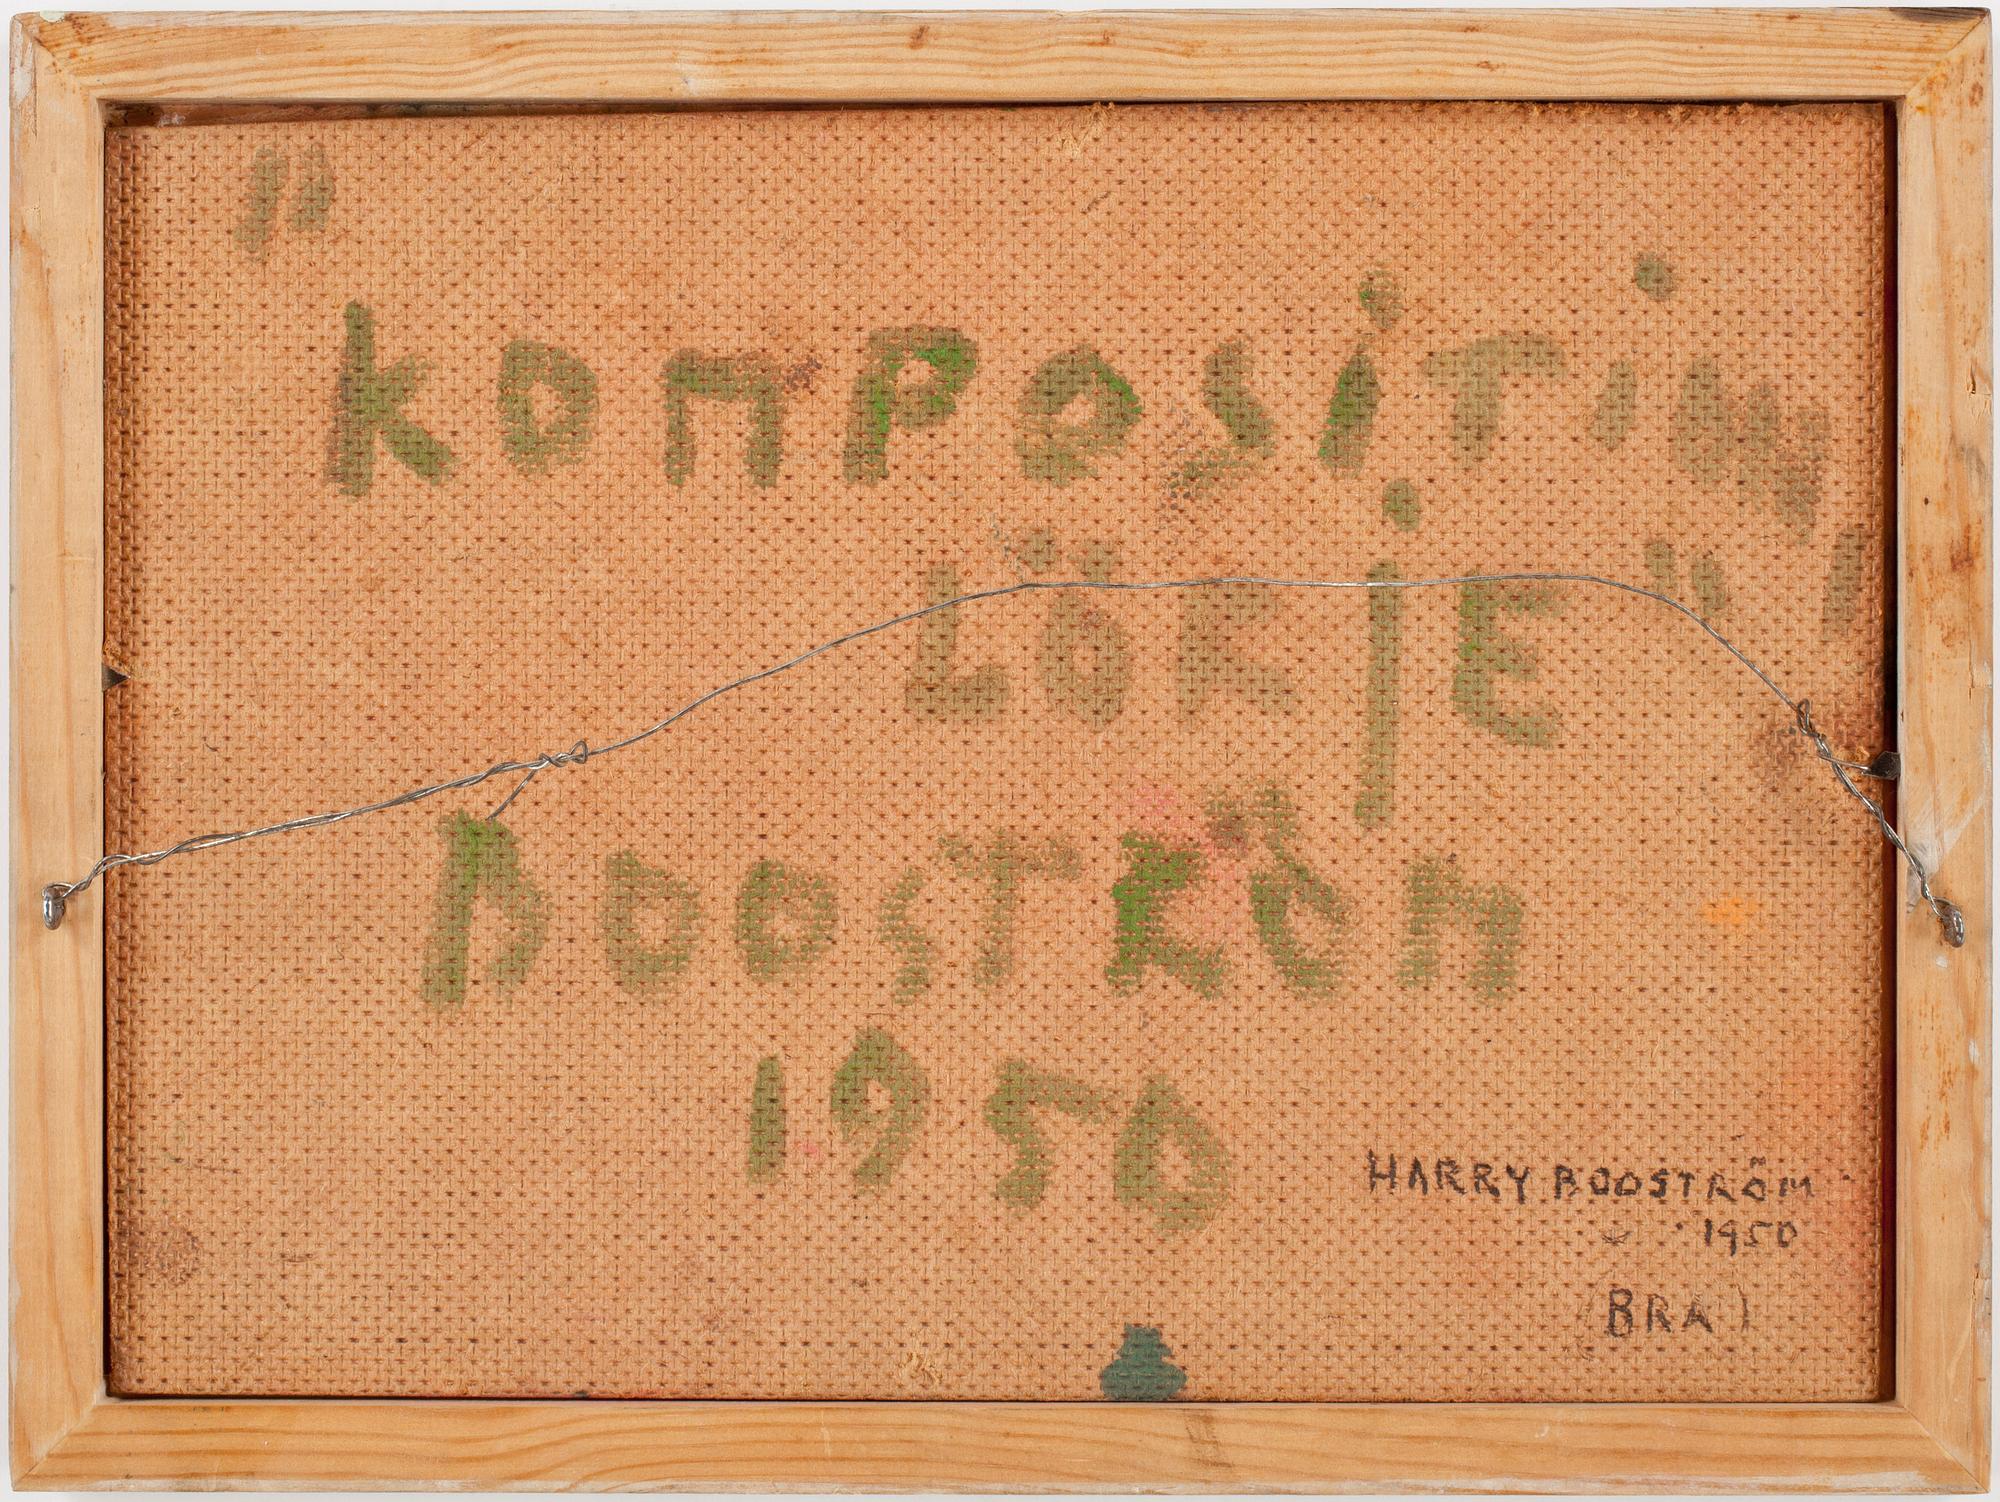 "konPesiTin
LÖRjE"
BOOSTRÖm
1950
HARRY BOOSTRÖM
1950
(BRA)